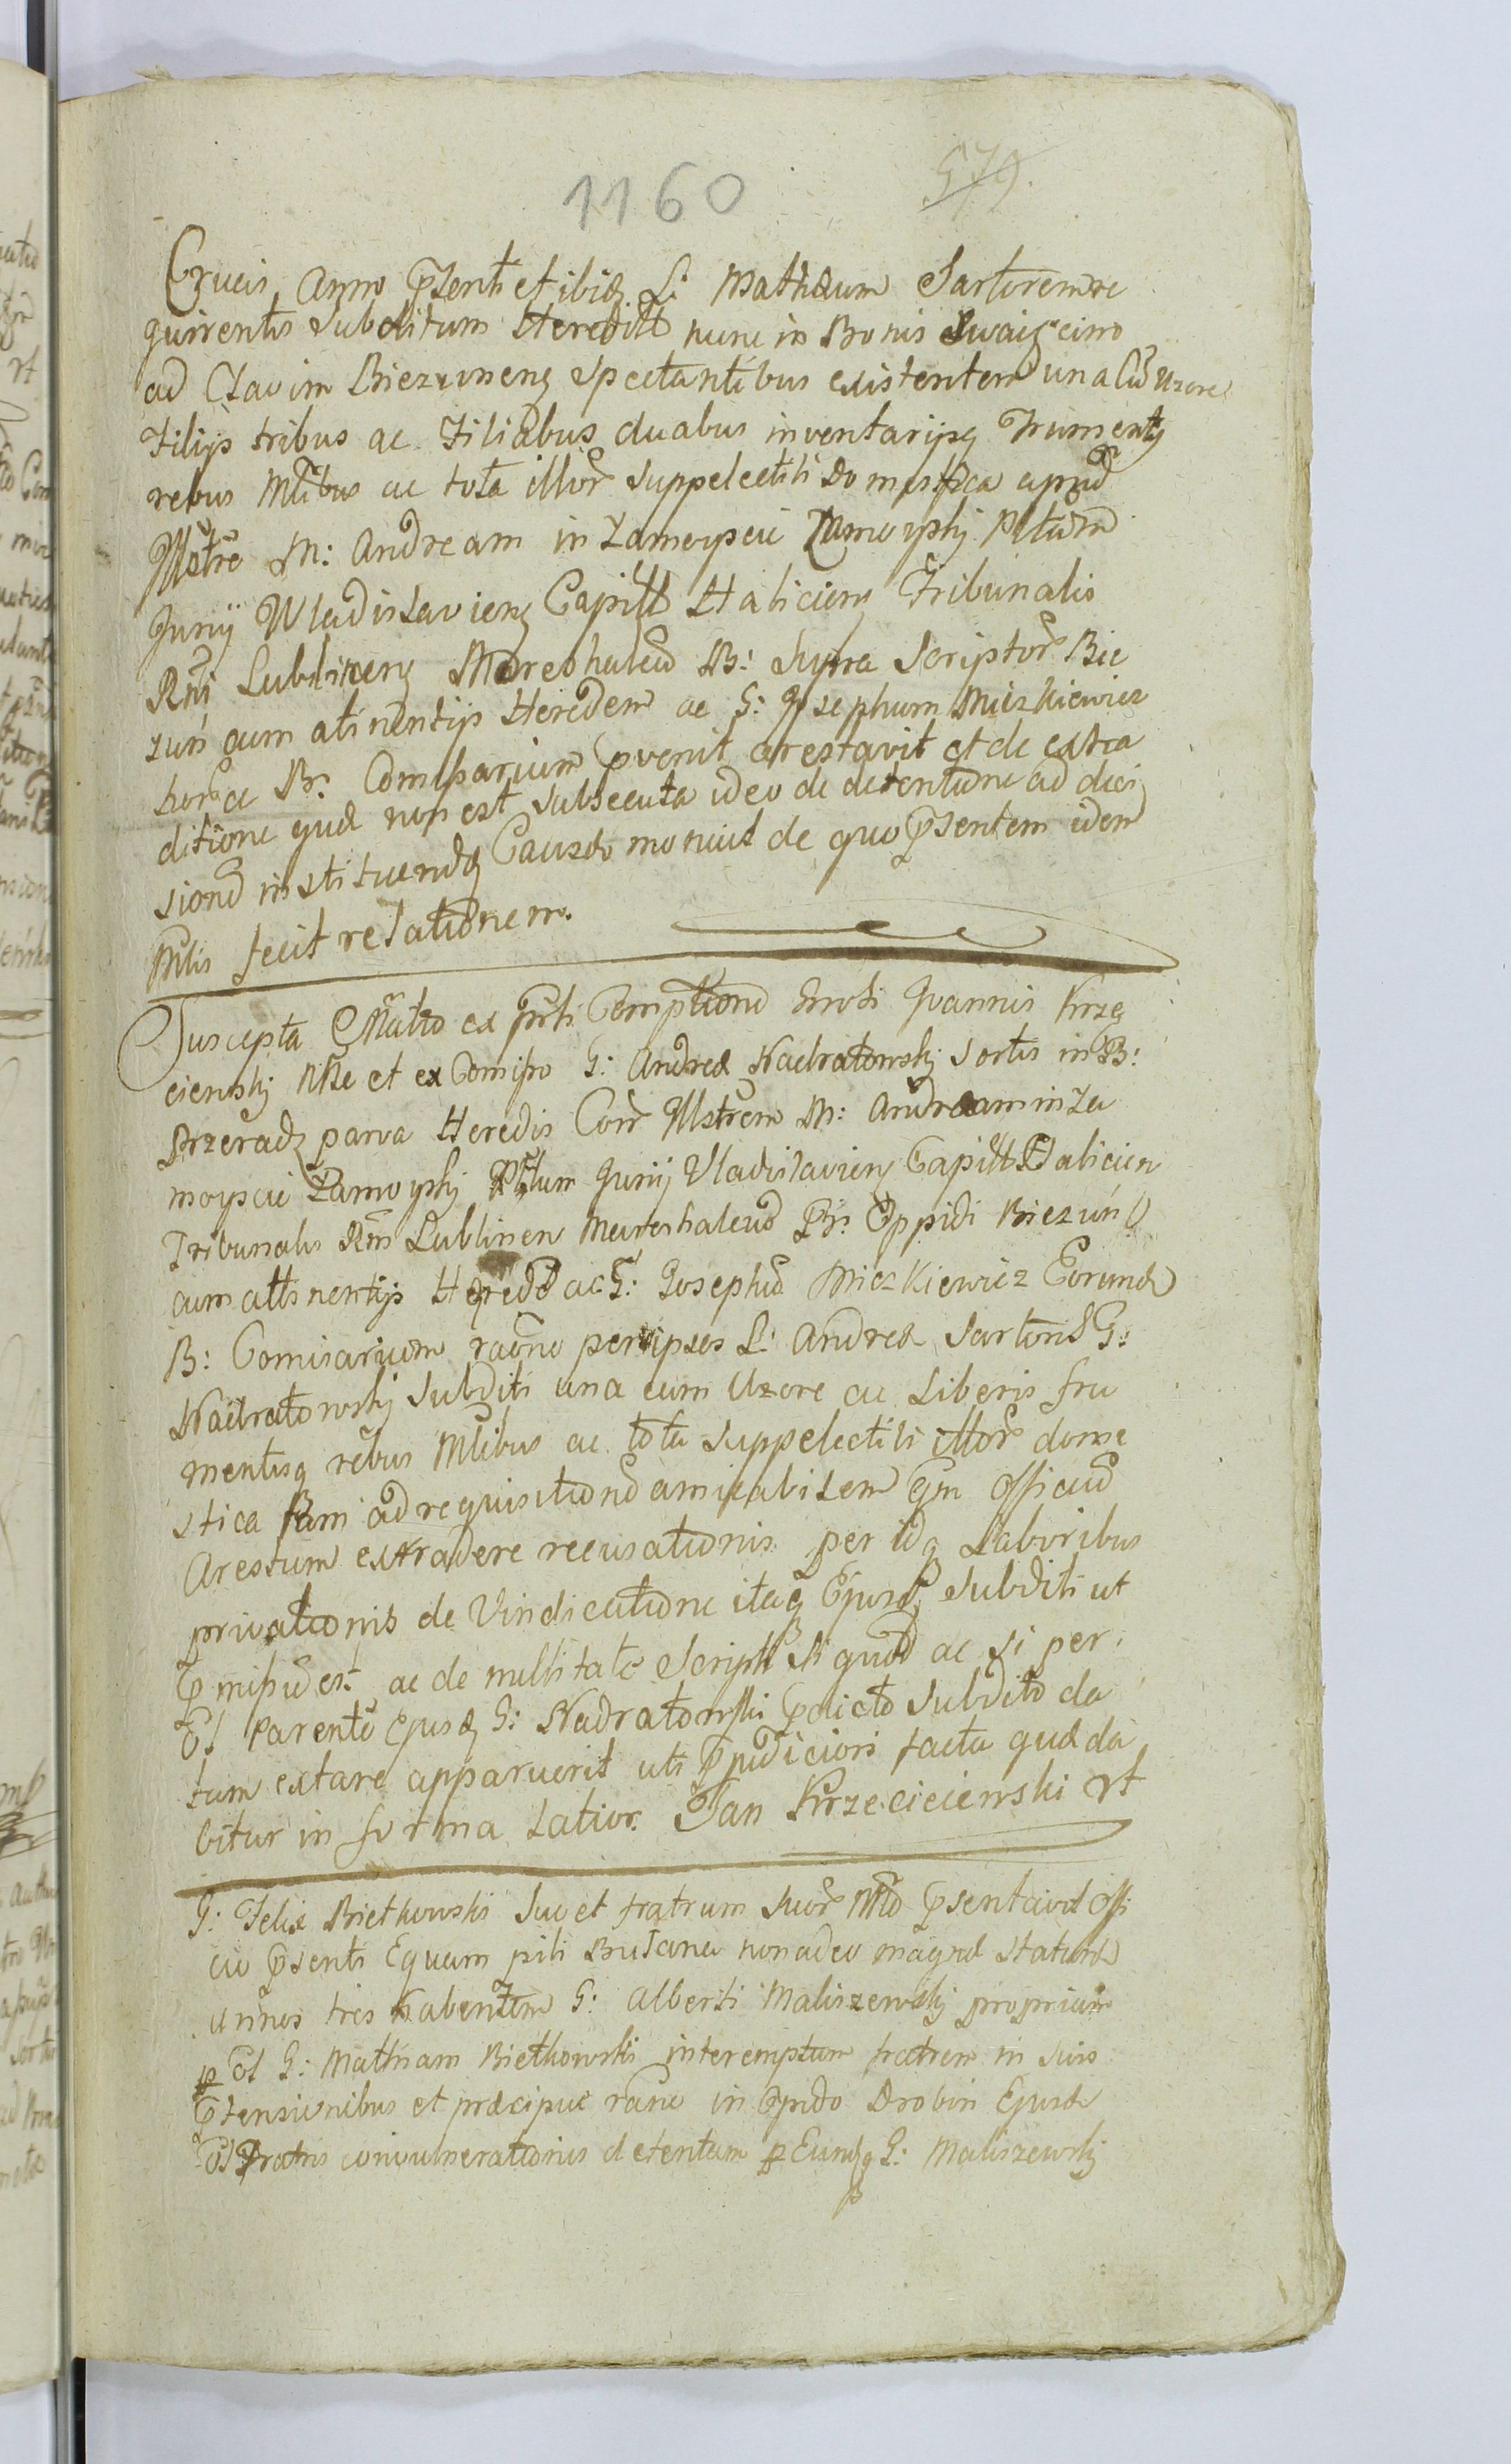 1160
579.
Crucis Anno Psenti et ibidz L: Mathæum Sartorem re
quirentis Subditum Heredit nunc in Bonis Swaięcino
ad Clavim Biezunenz spectantibus existentem una Cu Uxore
Filijs tribus ac Filiabus duabus inventarijsq Frumentz
rebus Mlibus ac tota illor Suppelectili Domestica apud
Illstre M: Andream in Zamoyscie Zamoyski Pltum
Junij Wladislaviens Capitl Haliciens Tribunalis
Rni Lublinenz Mareshalcu B: Supra Scriptor Bie
zuń cum atinentijs Heredem ac G: Josephum Mieszkiewicz
hor ce B: Comisarium pvenit arestavit et de extra
ditione quæ non est Subsecuta ideo de detentione ad deci
sione instituendz Causæ monuit de quo Psentem idem
Mlis fecit relationem.
Suscepta Mattio ex prti Comptione Gnosi Joannis Krzę
cienski NRe et ex Comipo G: Andreæ Nadratowskij Sortis in B:
Przeradz parva Heredis Corr Illstrem M: Andream in Za
moyscie Zamoyskij Pltum Junij Vladislaviens Capitl Halicien
Tribunalis Rni Lublinen Mareshalcu B: Oppidi Biezuń
cum attinentijs Herede ac G: Josephu Mieszkiewicz Eorund
B: Comisarium raone per ipsos L: Andreæ Sartoris G:
Nadratowskij Subditi una cum Uxore ac Liberis fru
mentisq rebus Mlibus ac tota Suppelectili illor dome
stica tam ad requisitione amicabilem qm officiu
Arestum extradere recusationis per idq Laboribus
privationis de Vindicatione itaq Ejusd Subditi ut
Pmipu est ac de nullitate Scripti si quod ac si per
Ol Parente Ejusdz G: Nadratowski Pdicto Subdito da
tum extare apparuerit uti Ppudiciosi facta quæ da
bitur in forma latior. Jan Krzeciciewski rt
G: Felix Bietkowski Suo et fratrum Suor Nro Psentavit Offi
cio Psenti Equam pili Bulana non adeo magnæ Staturæ
annos tres habentem G: Alberti Maliszewskij proprium
p Ol G: Mathiam Bietkowski interemptum fratrem in Suis
Ptensionibus et præcipue rane in Opido Drobin Ejusd
Ol Fratris convulnerationis detentam p Eundq G: Maliszewskij